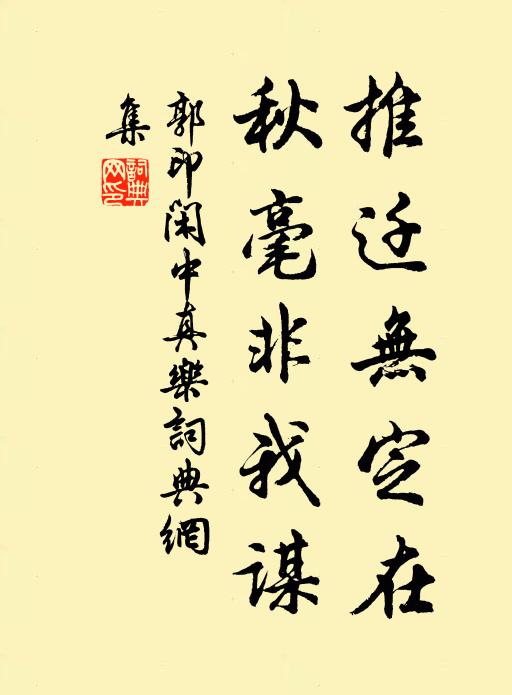 推迁無定在
秋毫非我謀
郭印閑中真樂詞典網
集
詞典網印